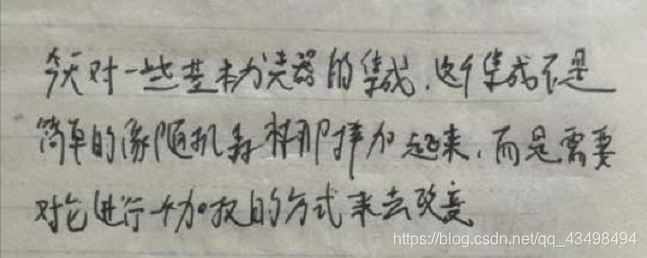 今天对一些基本分类器的集成,这个集成不是
简单的像随机森林那样加起来,而是需要
对它进行一个加权的方式来去改变
https://blog.csdn.net/qq_43498494